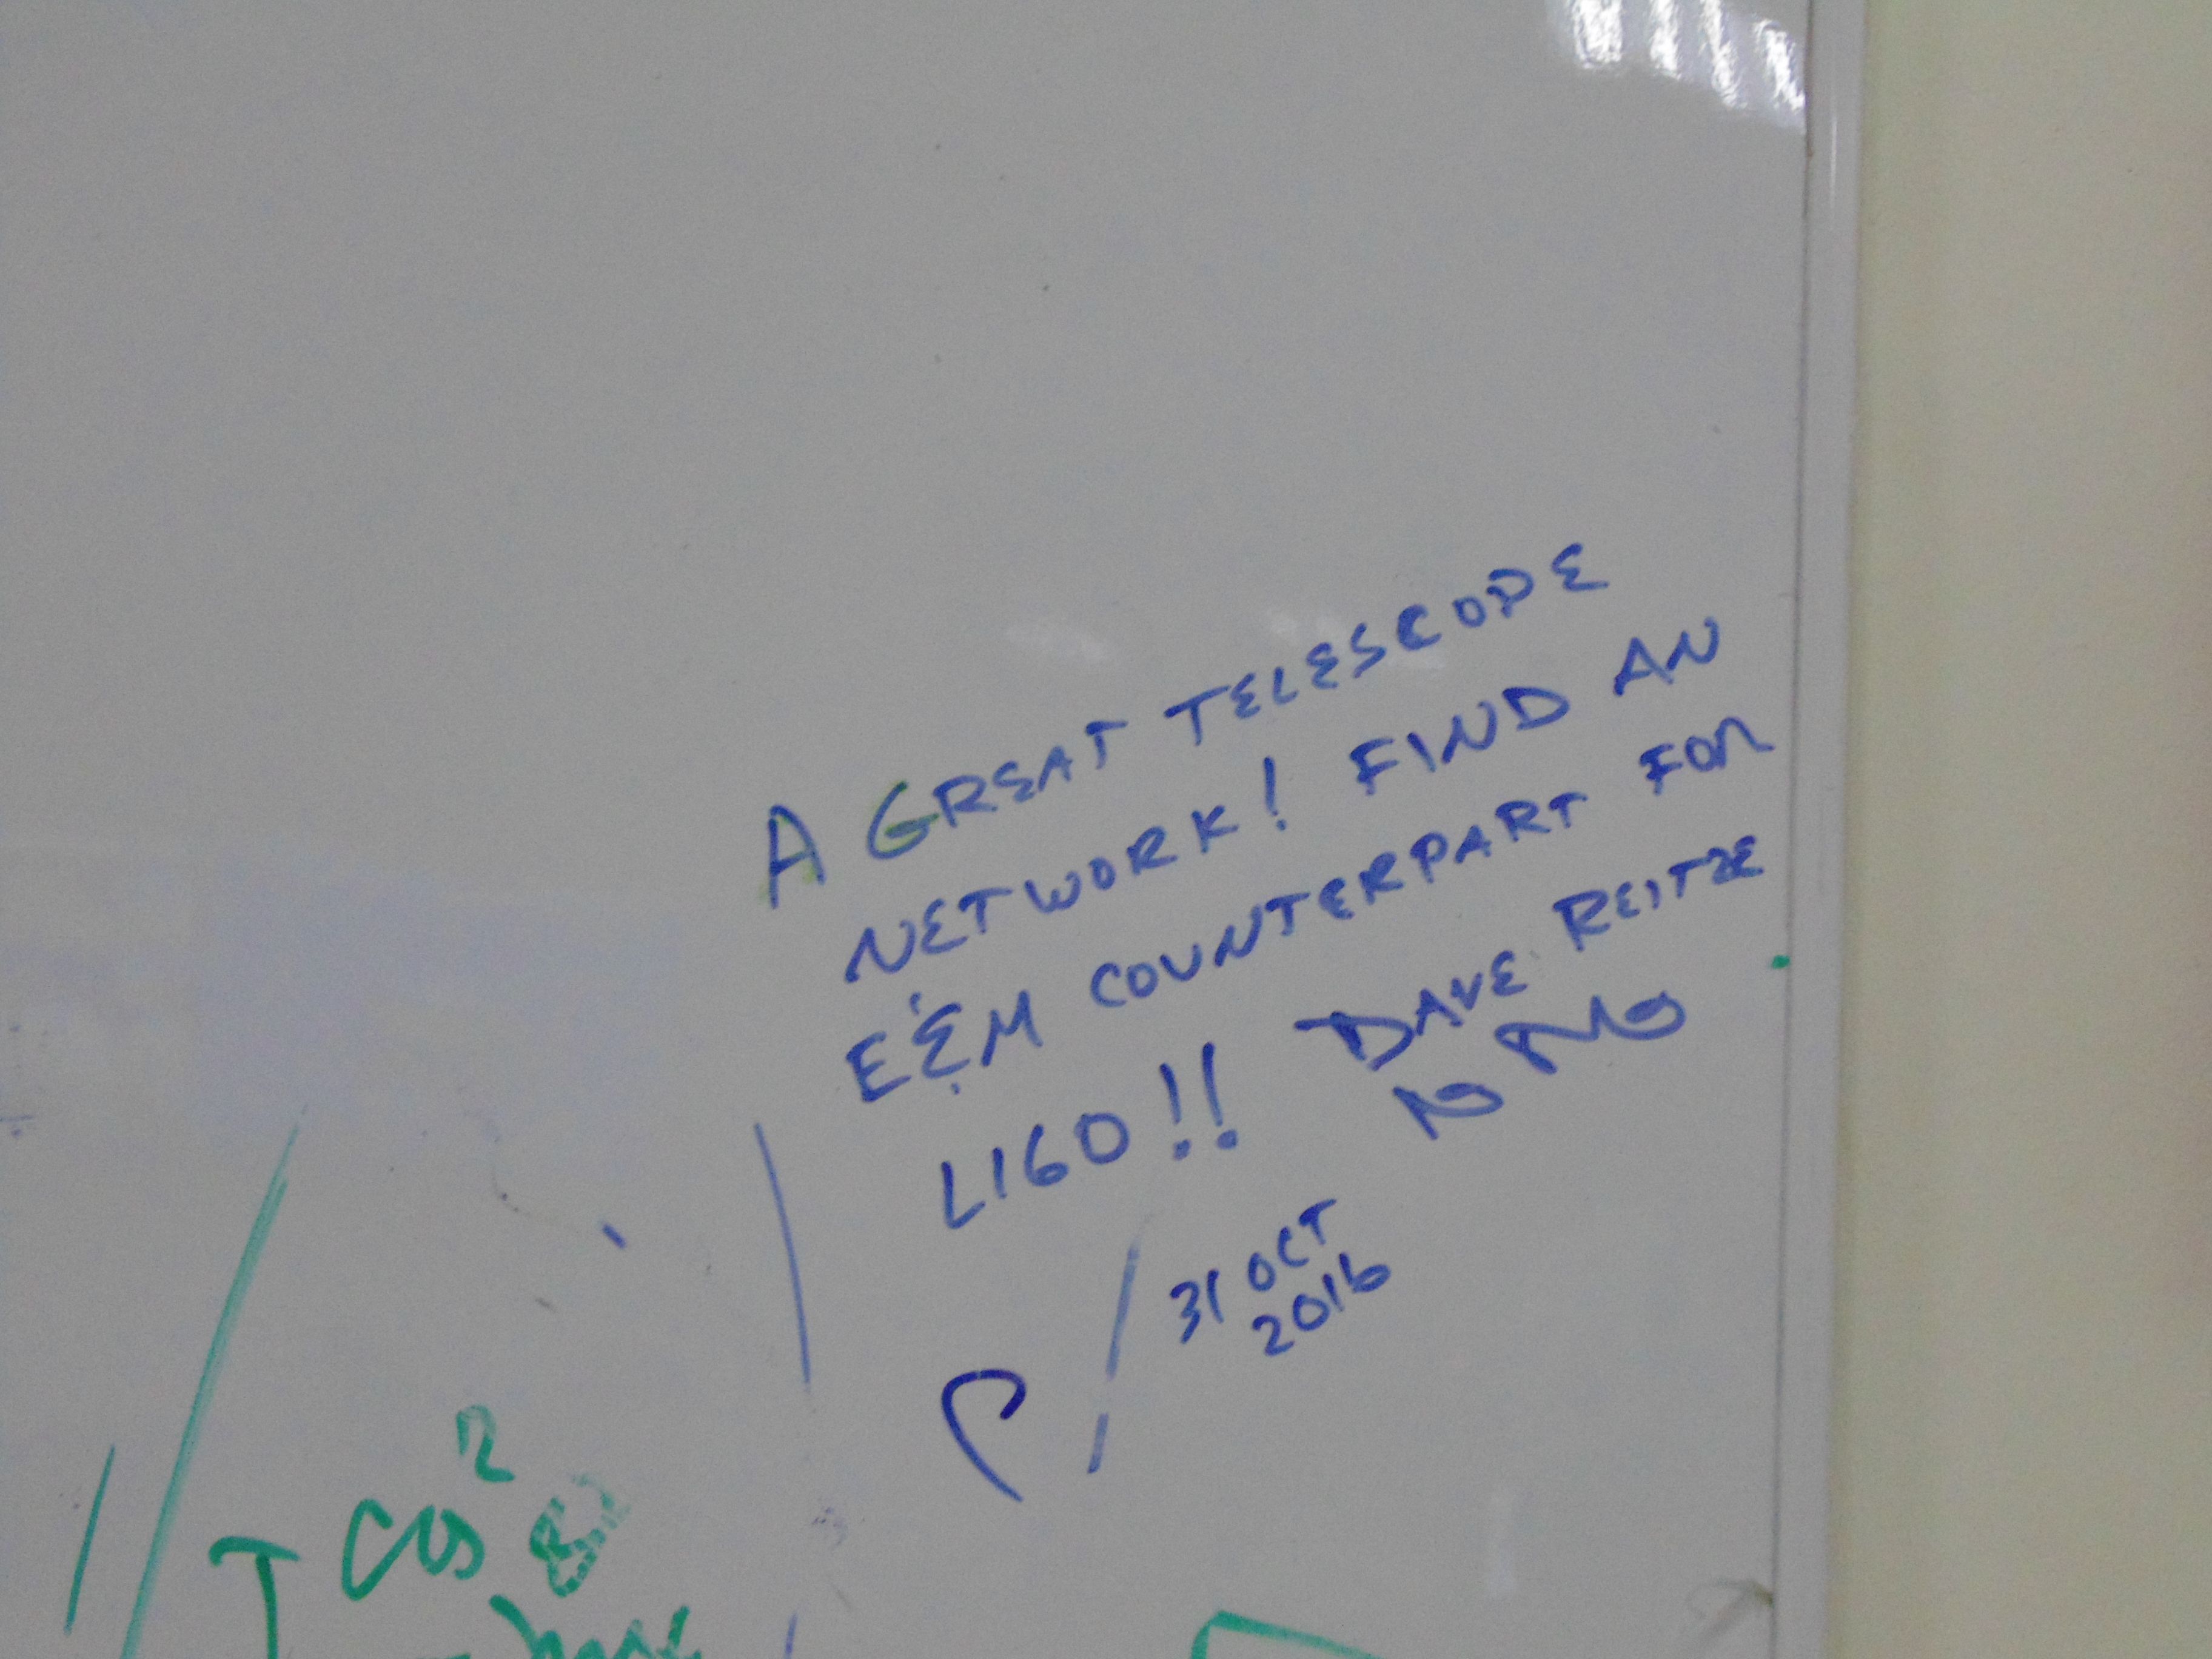 A GREAT TELESCOPE
NETWORK! FIND AN
E&M COUNTERPART FOR
LIGO!! DAVE REITZE
31 OCT
2016
T cos²